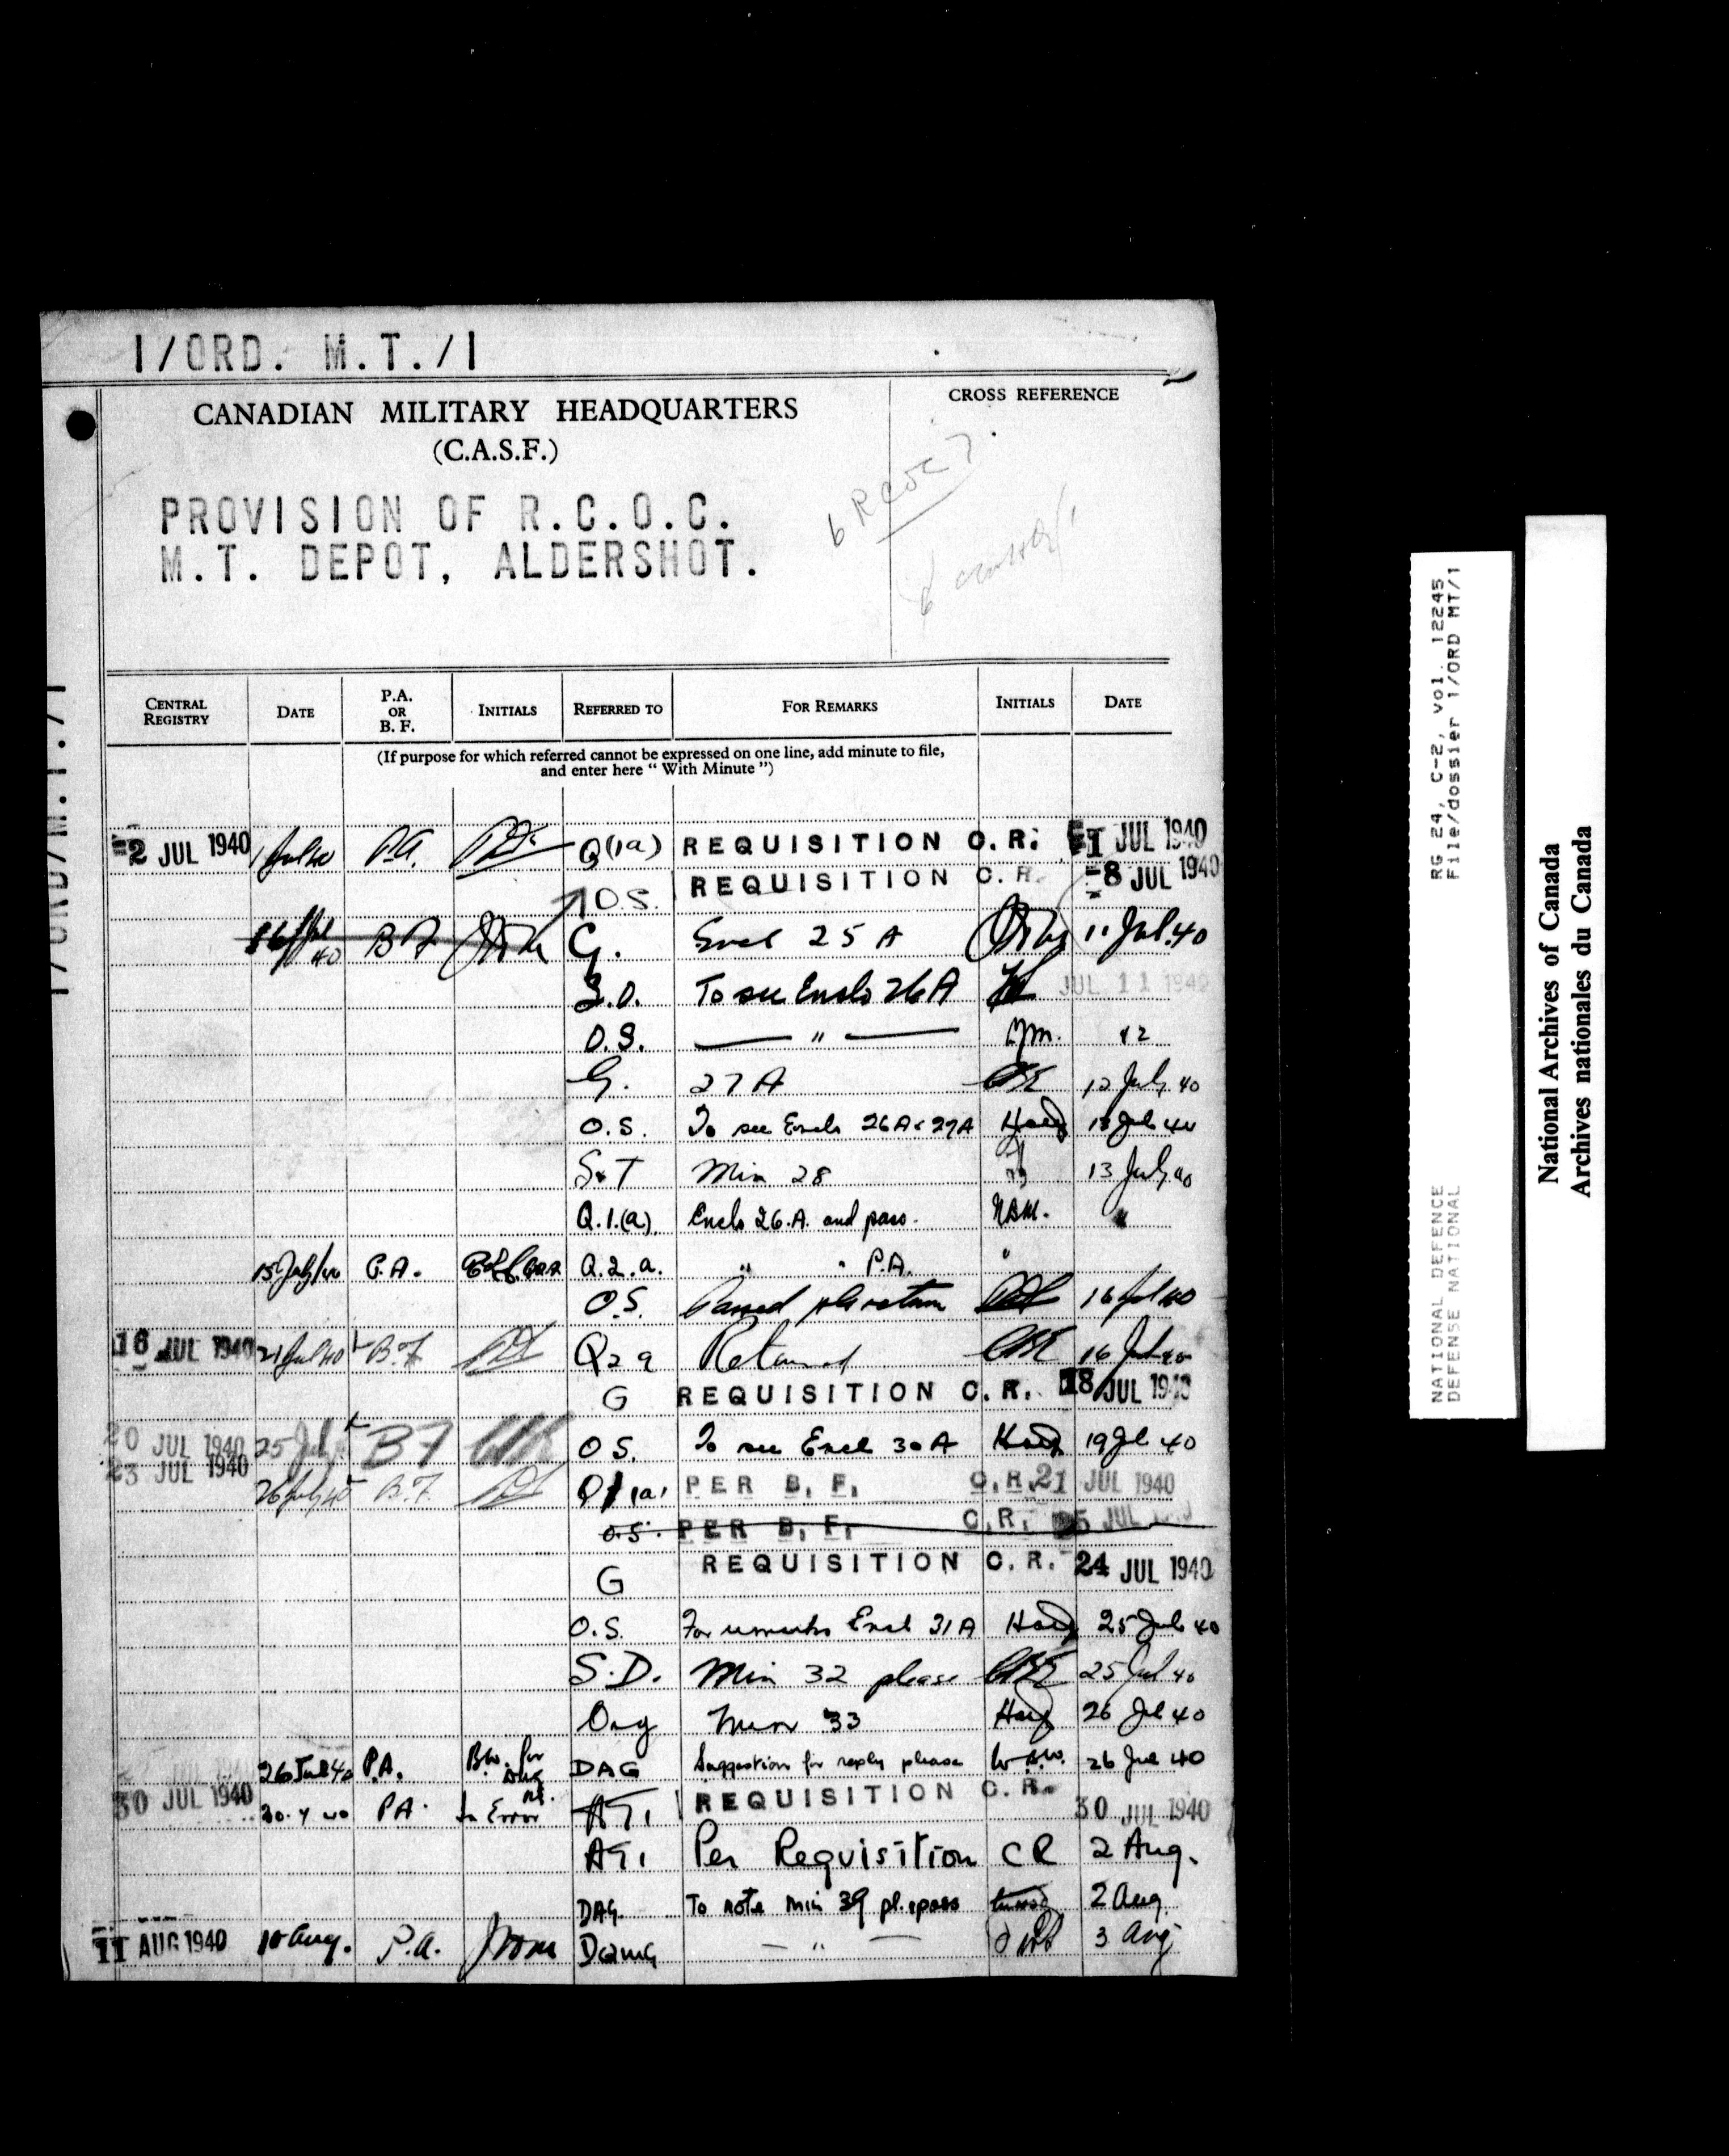 1/ORD. M.T./1
CANADIAN MILITARY HEADQUARTERS
(C.A.S.F.)
CROSS REFERENCE
PROVISION OF R.C.O.C.
M.T. DEPOT, ALDERSHOT.
CENTRAL REGISTRY DATE P.A. OR B.F. INITIALS REFERRED TO FOR REMARKS INITIALS DATE
(If purpose for which referred cannot be expressed on one line, add minute to file,
and enter here " With Minute ")
2 JUL 1940 P.A. Q(1a) REQUISITION C.R. 1 JUL 1940
O.S. REQUISITION C.R. 8 JUL 1940
B F G. Encl 25 A 11 Jul. 40
S.D. To see Enclo 26A JUL 11 1940
O.S. — " — 12
G. 27A 12 July 40
O.S. To see Encls 26A & 27A 13 Jul 40
S&T Min 28 13 July 40
Q.1.(a). Enclo 26.A. and pass. "
15 July/40 P.A. Q.2.a. " " P.A. "
O.S. Passed 16 Jul 40
16 JUL 1940 21 Jul 40 B.F. Q2a Returned 16 Jul 40
G REQUISITION C.R. 18 JUL 1940
20 JUL 1940 25 July BF O.S. To see Encl 30A 19 Jul 40
23 JUL 1940 26 July 40 B.F. Q1(a) PER B.F. C.R. 21 JUL 1940
O.S. PER B.F. C.R. 25 JUL
G REQUISITION C.R. 24 JUL 1940
O.S. For remarks Encl 31A 25 Jul 40
S.D. Min 32 please 25 Jul 40
Org Min 33 26 Jul 40
26 Jul 40 P.A. DAG Suggestion for reply please 26 Jul 40
30 JUL 1940 30.7.40 PA. In Error AG1 REQUISITION C.R. 30 JUL 1940
AG1 Per Requisition CR 2 Aug.
DAG. To note Min 39 pl. & pass 2 Aug.
11 AUG 1940 10 Aug. P.A. DQMG — " — 3 Aug
1/ORD/M.T./1
NATIONAL DEFENCE RG 24, C-2, vol. 12245,
DEFENSE NATIONAL File/dossier 1/ORD MT/1
National Archives of Canada
Archives nationales du Canada